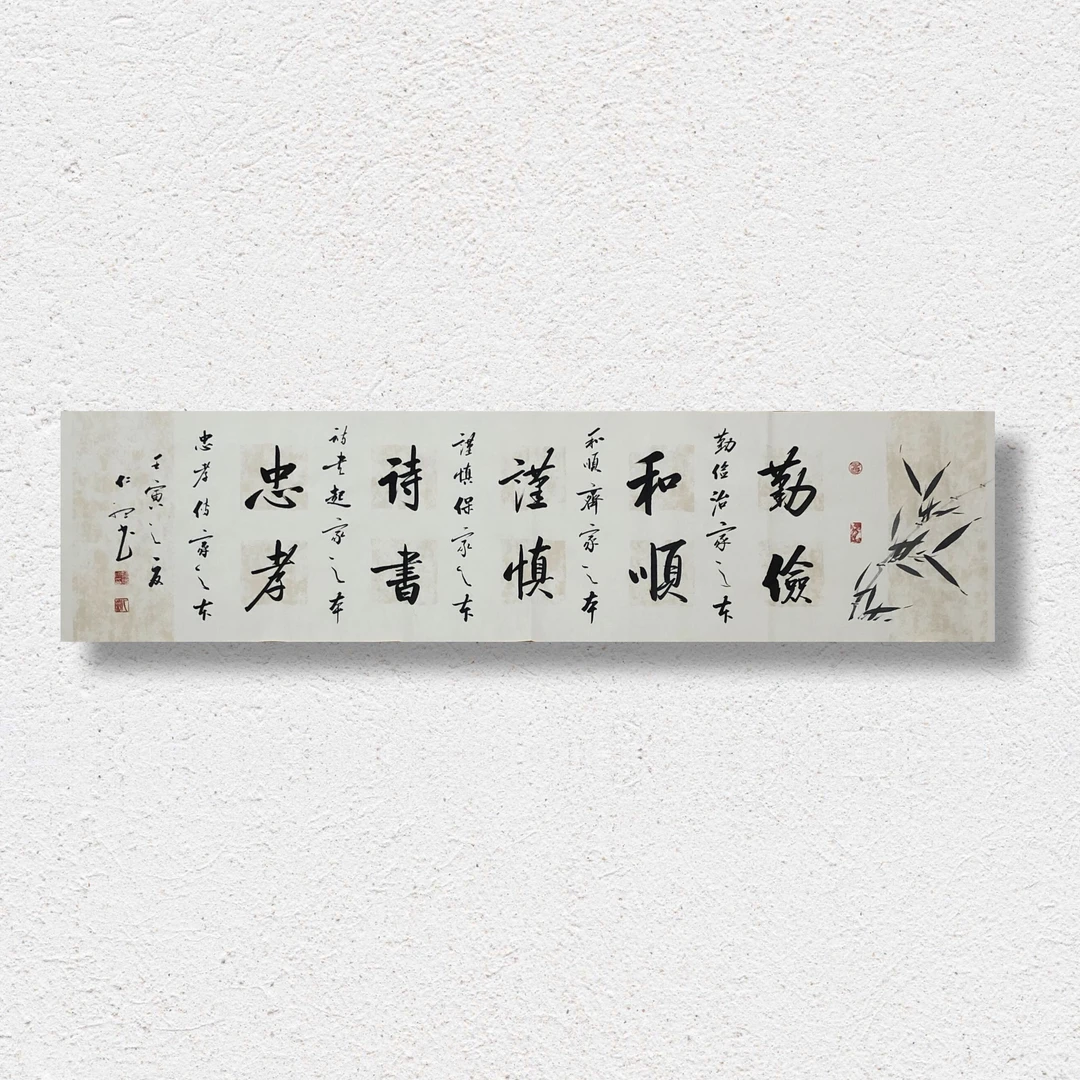 勤儉
勤俭治家之本
和順
和順齊家之本
謹慎
謹慎保家之本
詩書
詩书起家之本
忠孝
忠孝传家之本
壬寅之夏
仁
书